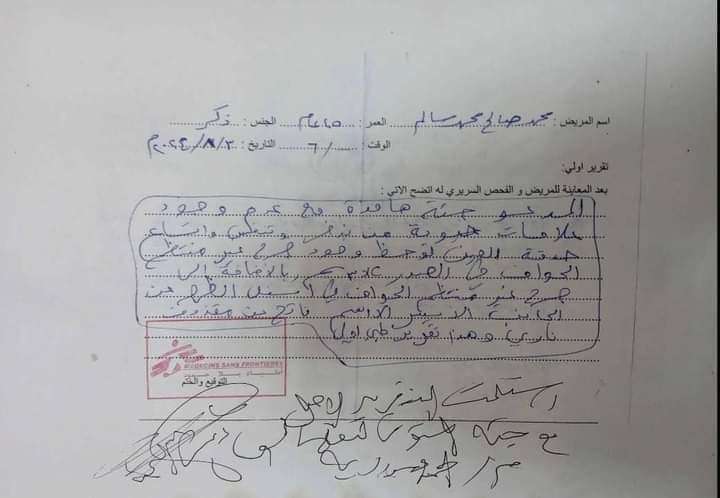 اسم المريض : محمد صالح محمد سالم العمر : ٢٥ عام الجنس : ذكر
الوقت : / ٦ التاريخ : ٢٠٢٤/٨/٣م
تقرير اولي:
بعد المعاينة للمريض و الفحص السريري له اتضح الاتي :
المدعو جثة هامدة مع عدم وجود
علامات حيوية من نبض وتنفس واتساع
حدقة العين لوحظ وجود جرح غير منتظم
الحواف في الصدر بالاضافة الى
جرح غير منتظم الحواف في اسفل الظهر من
الجانب الايسر ناتج من مقذوف
ناري وهذا تقرير طبي اولي
MEDECINS SANS FRONTIERES
أطباء بلا حدود
التوقيع والختم
استلمت التقرير الاصل
مع جثة